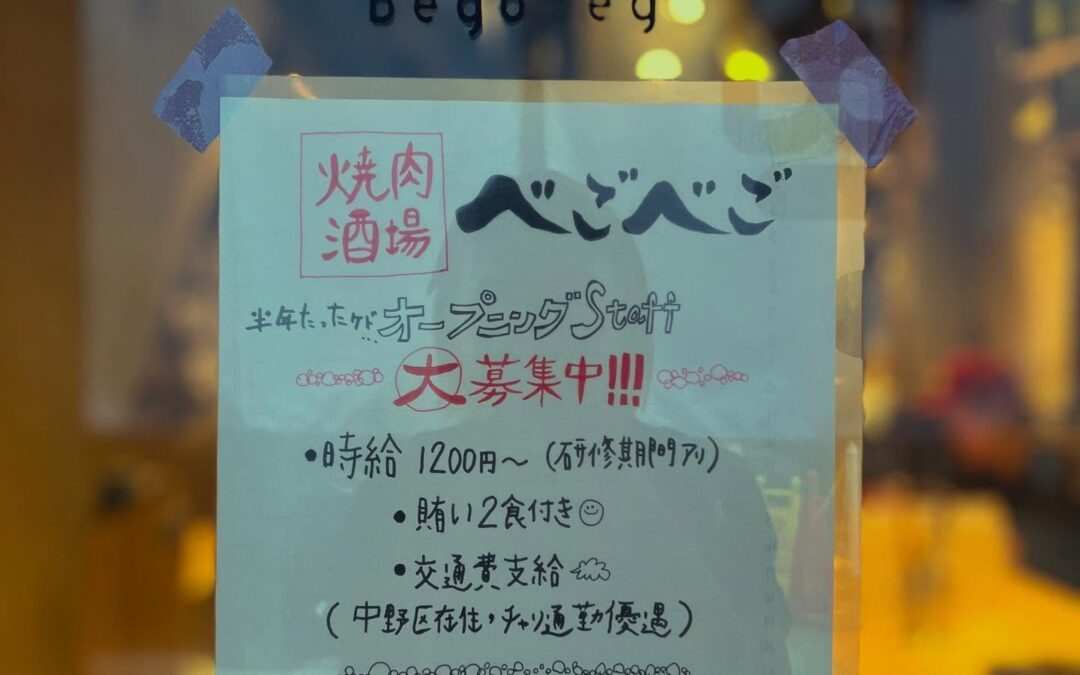 焼肉
酒場
べごべご
半年たったケド… オープニングStaff
大募集中!!!
・時給 1200円〜 (研修期間アリ)
・賄い2食付き
・交通費支給
(中野区在住,チャリ通勤優遇)